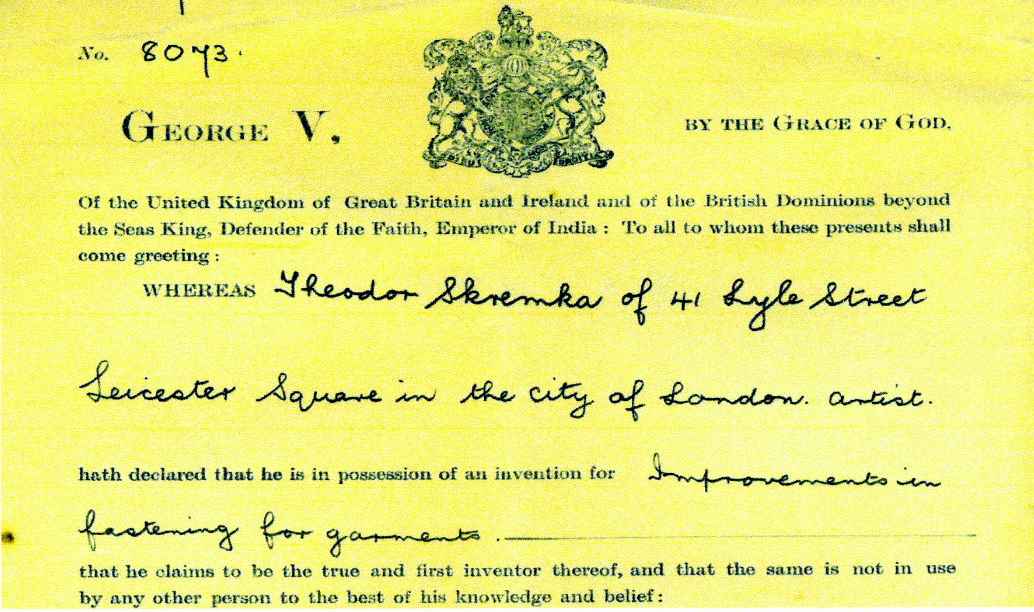 No. 8073.
GEORGE V, BY THE GRACE OF GOD,
Of the United Kingdom of Great Britain and Ireland and of the British Dominions beyond
the Seas King, Defender of the Faith, Emperor of India : To all to whom these presents shall
come greeting :
WHEREAS Theodor Skremka of 41 Lyle Street
Leicester Square in the city of London. artist.
hath declared that he is in possession of an invention for Improvements in
fastening for garments.
that he claims to be the true and first inventor thereof, and that the same is not in use
by any other person to the best of his knowledge and belief :